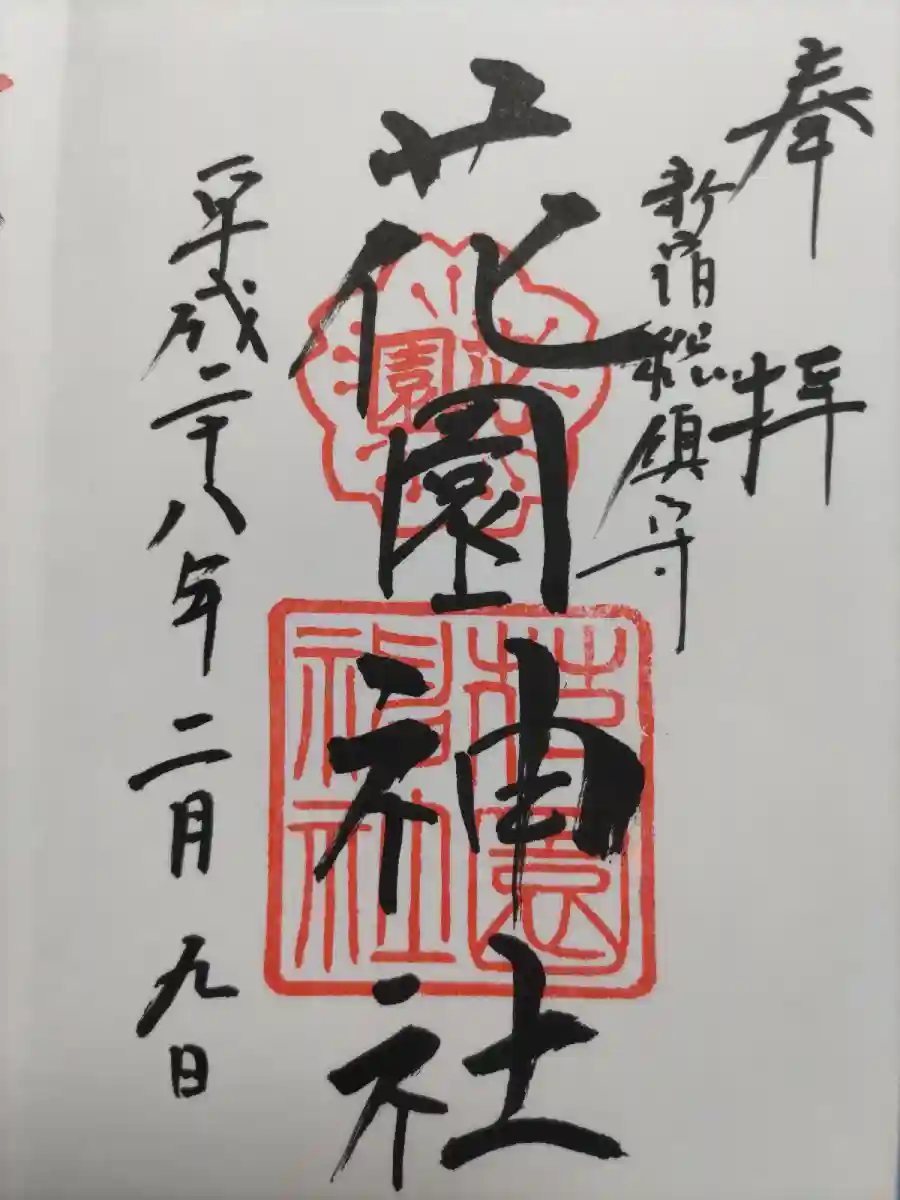 奉拝
新宿総鎮守
花園神社
平成二十八年二月九日
花園
花園神社